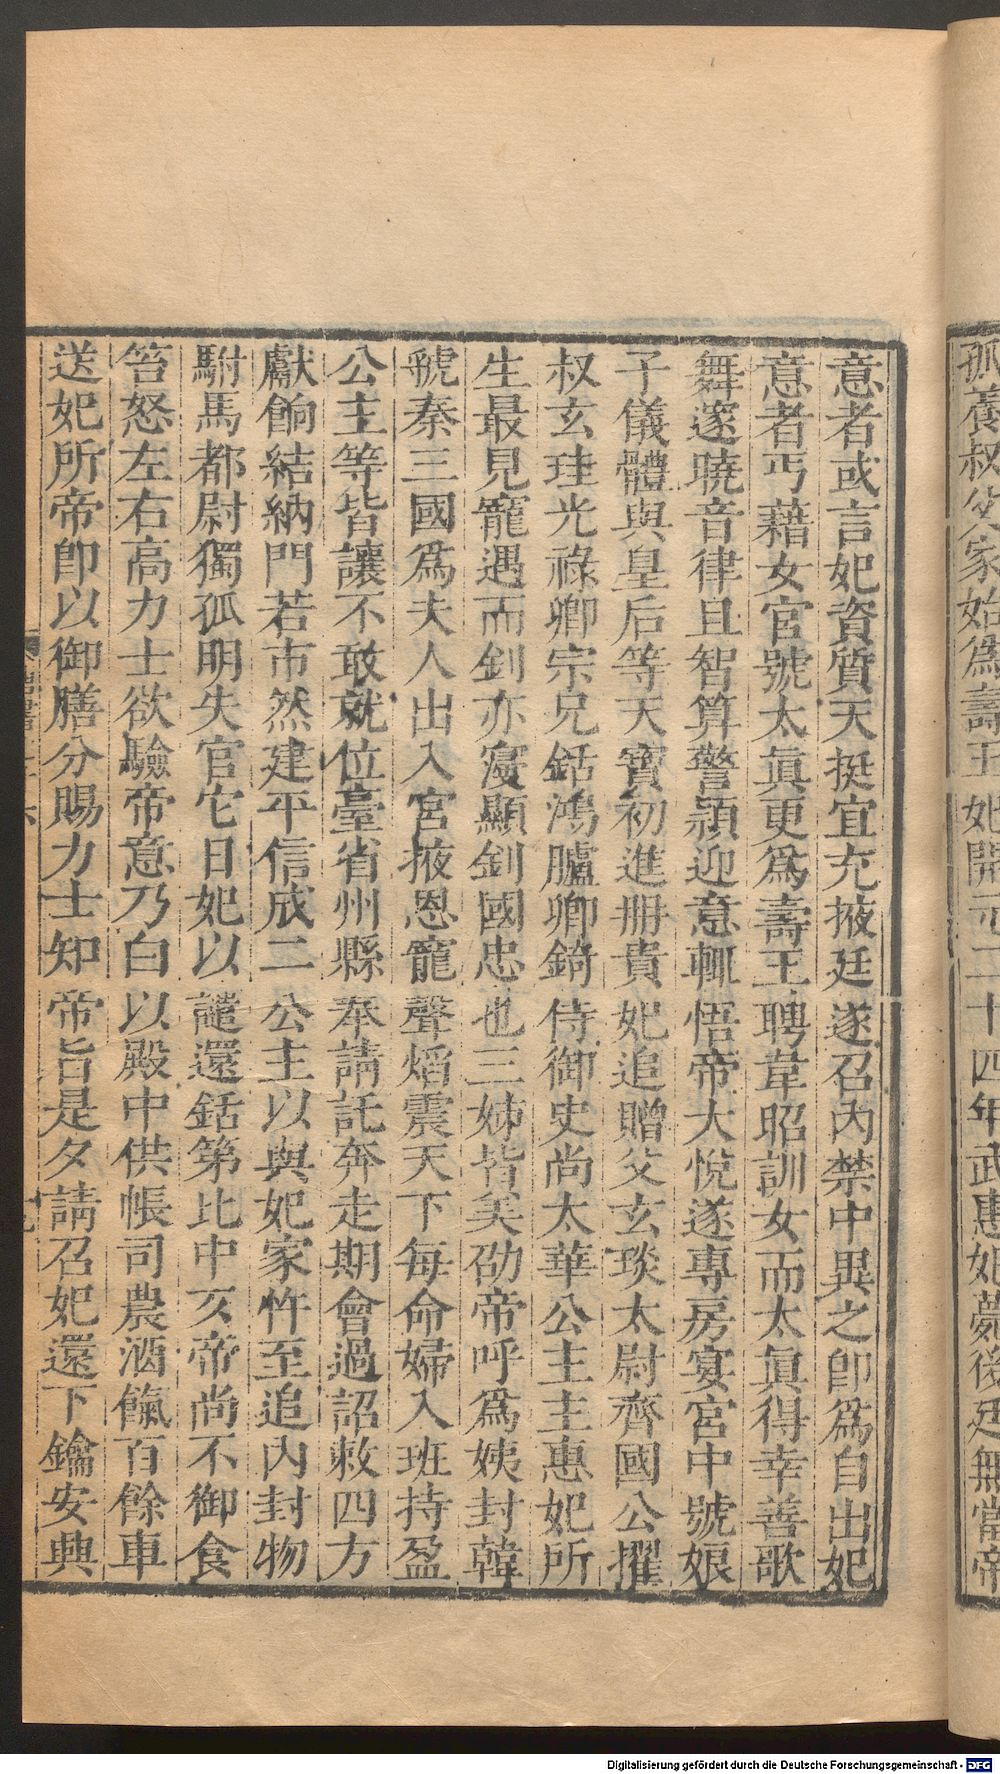 孤養叔父家始爲壽王妃開元二十四年武惠妃薨後廷無當帝
意者或言妃資質天挺宜充掖廷遂召内禁中異之卽爲自出妃
意者丐藉女官號太眞更爲壽王聘韋昭訓女而太眞得幸善歌
舞邃曉音律且智算警穎迎意輒悟帝大悅遂專房宴宮中號娘
子儀體與皇后等天寶初進册貴妃追贈父玄琰太尉齊國公擢
叔玄珪光祿卿宗兄銛鴻臚卿錡侍御史尚太華公主主惠妃所
生最見寵遇而釗亦寖顯釗國忠也三姊皆美劭帝呼爲姨封韓
虢秦三國爲夫人出入宮掖恩寵聲熖震天下每命婦入班持盈
公主等皆讓不敢就位臺省州縣奉請託奔走期會過詔敕四方
獻餉結納門若市然建平信成二公主以與妃家忤至追内封物
駙馬都尉獨孤明失官它日妃以譴還銛第比中仄帝尚不御食
笞怒左右高力士欲驗帝意乃白以殿中供帳司農酒餼百餘車
送妃所帝卽以御膳分賜力士知帝旨是夕請召妃還下鑰安興
Digitalisierung gefördert durch die Deutsche Forschungsgemeinschaft - DFG